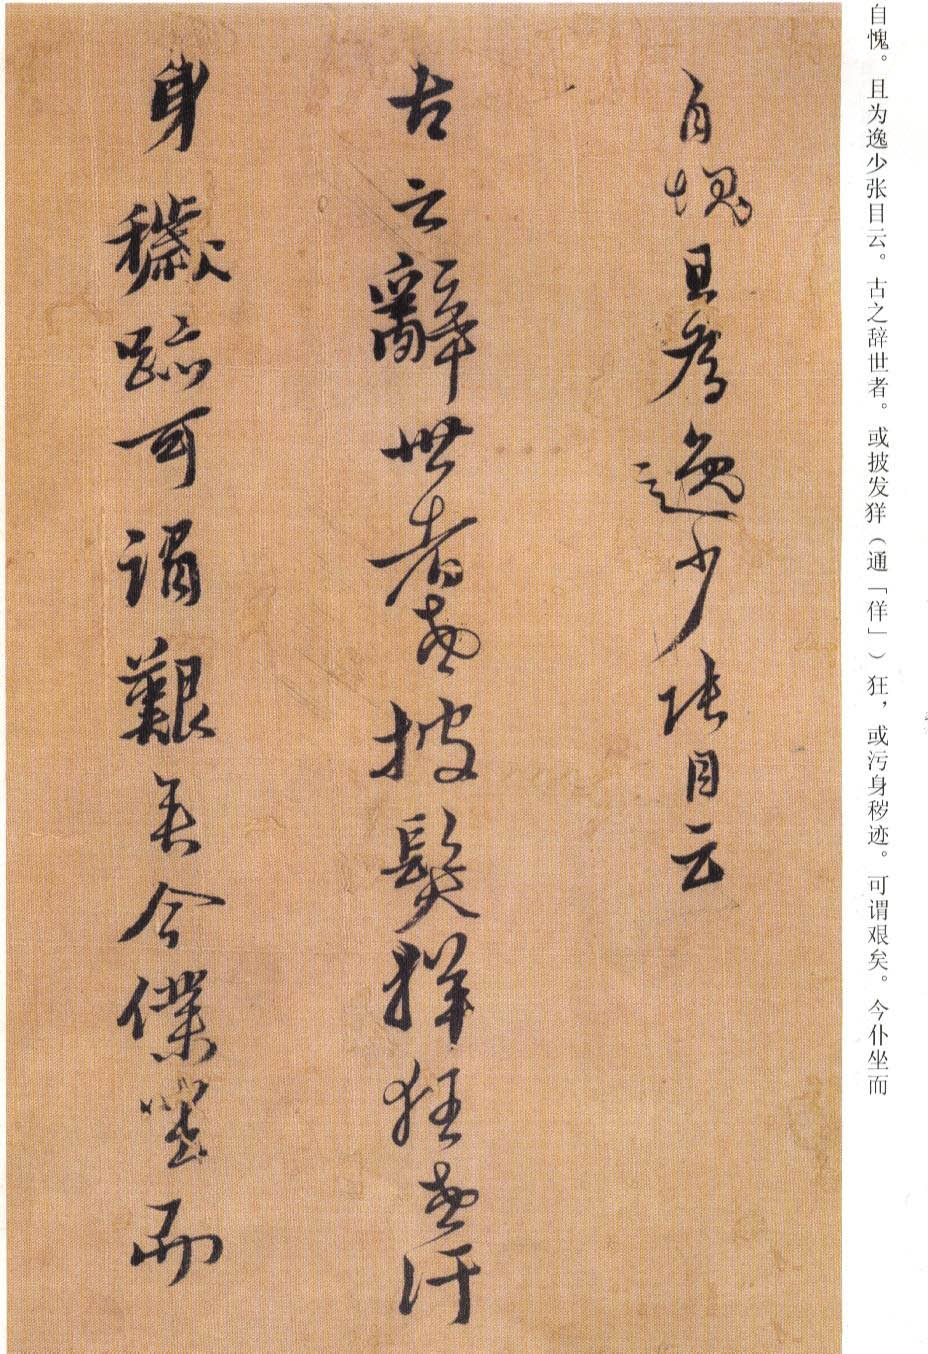 自愧。且为逸少张目云。古之辞世者。或披发猂（通「佯」）狂，或污身秽迹。可谓艰矣。今仆坐而
自愧且為逸少張目云
古之辭世者或披髮猂狂或汙
身穢跡可謂艱矣今僕坐而